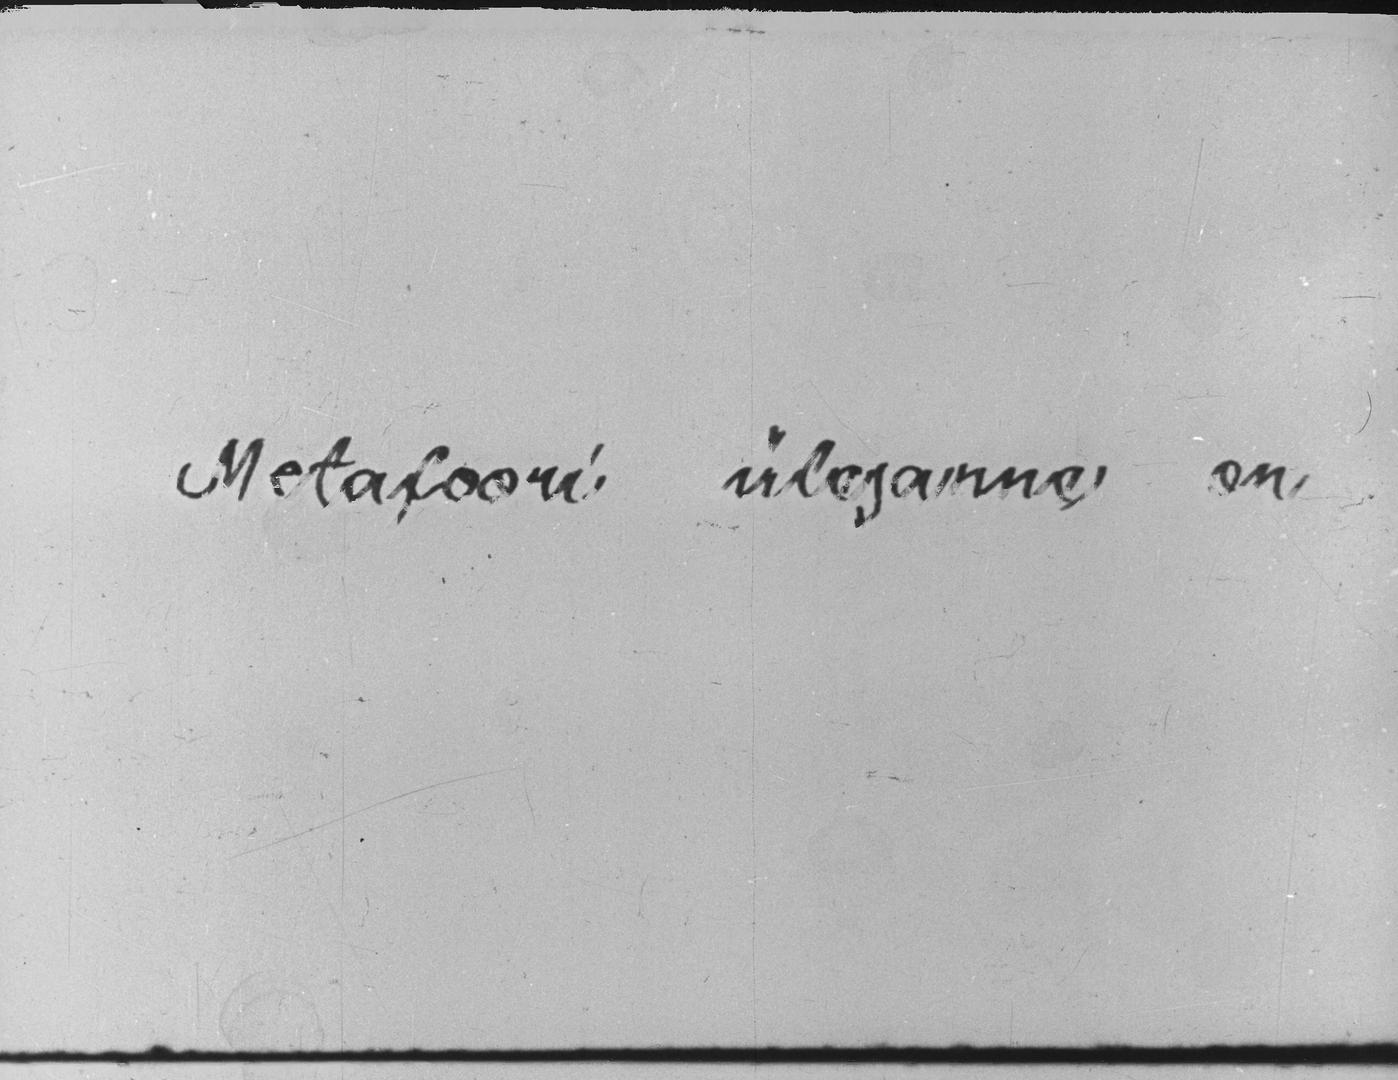 Metafoori ülesanne on